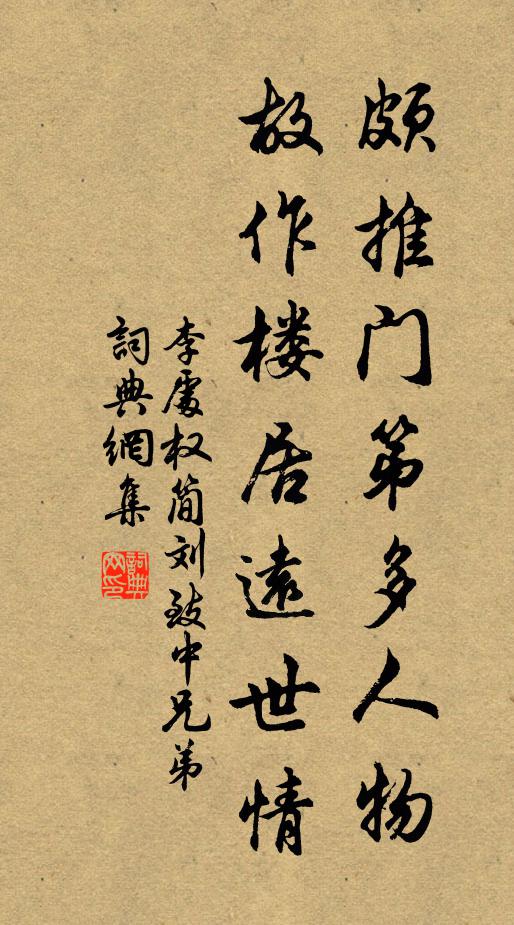 颇推门第多人物
故作楼居遠世情
李處权简刘致中兄弟
詞典網集
詞典网印